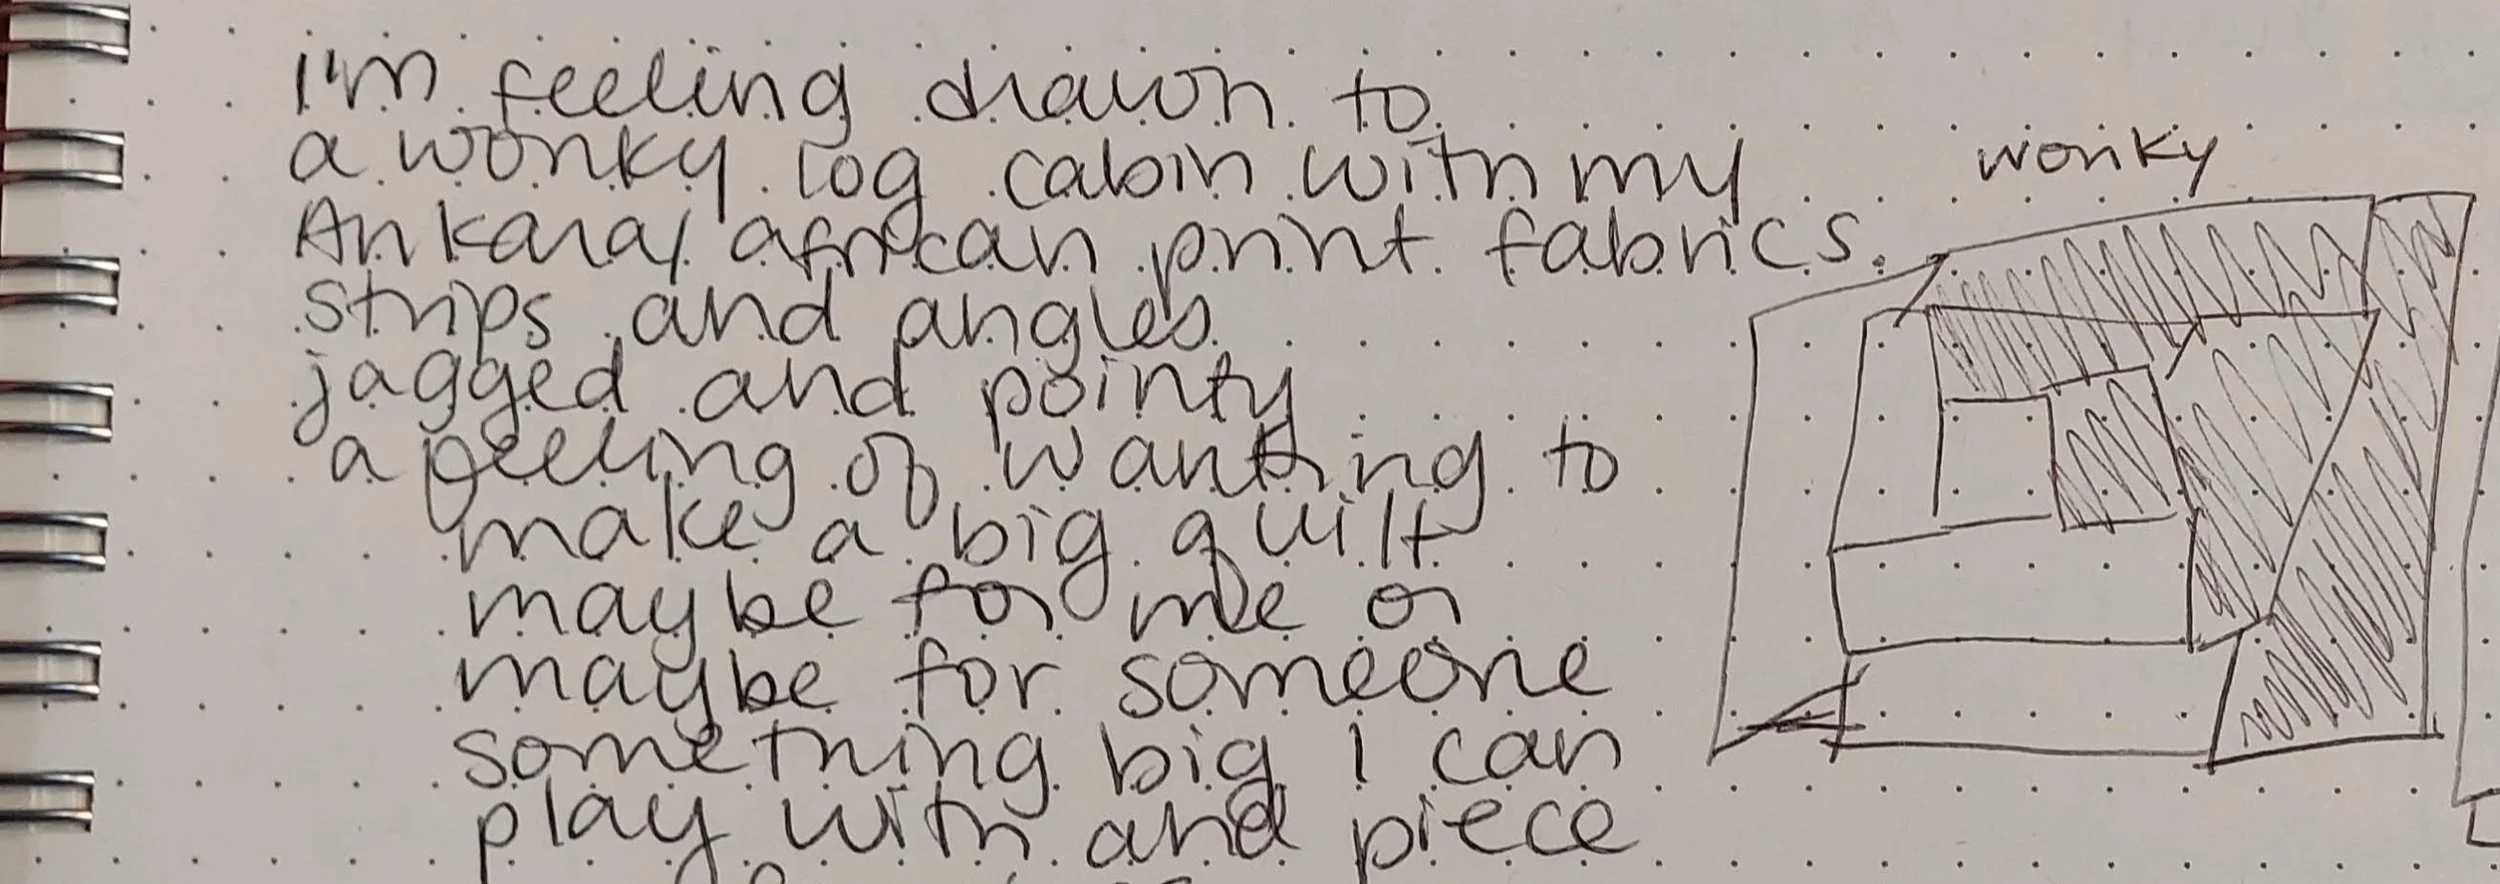 I'm feeling drawn to
a wonky log cabin with my
Ankara/african print fabrics.
strips and angles
jagged and pointy
a feeling of wanting to
make a big quilt
maybe for me or
maybe for someone
something big I can
play with and piece
wonky